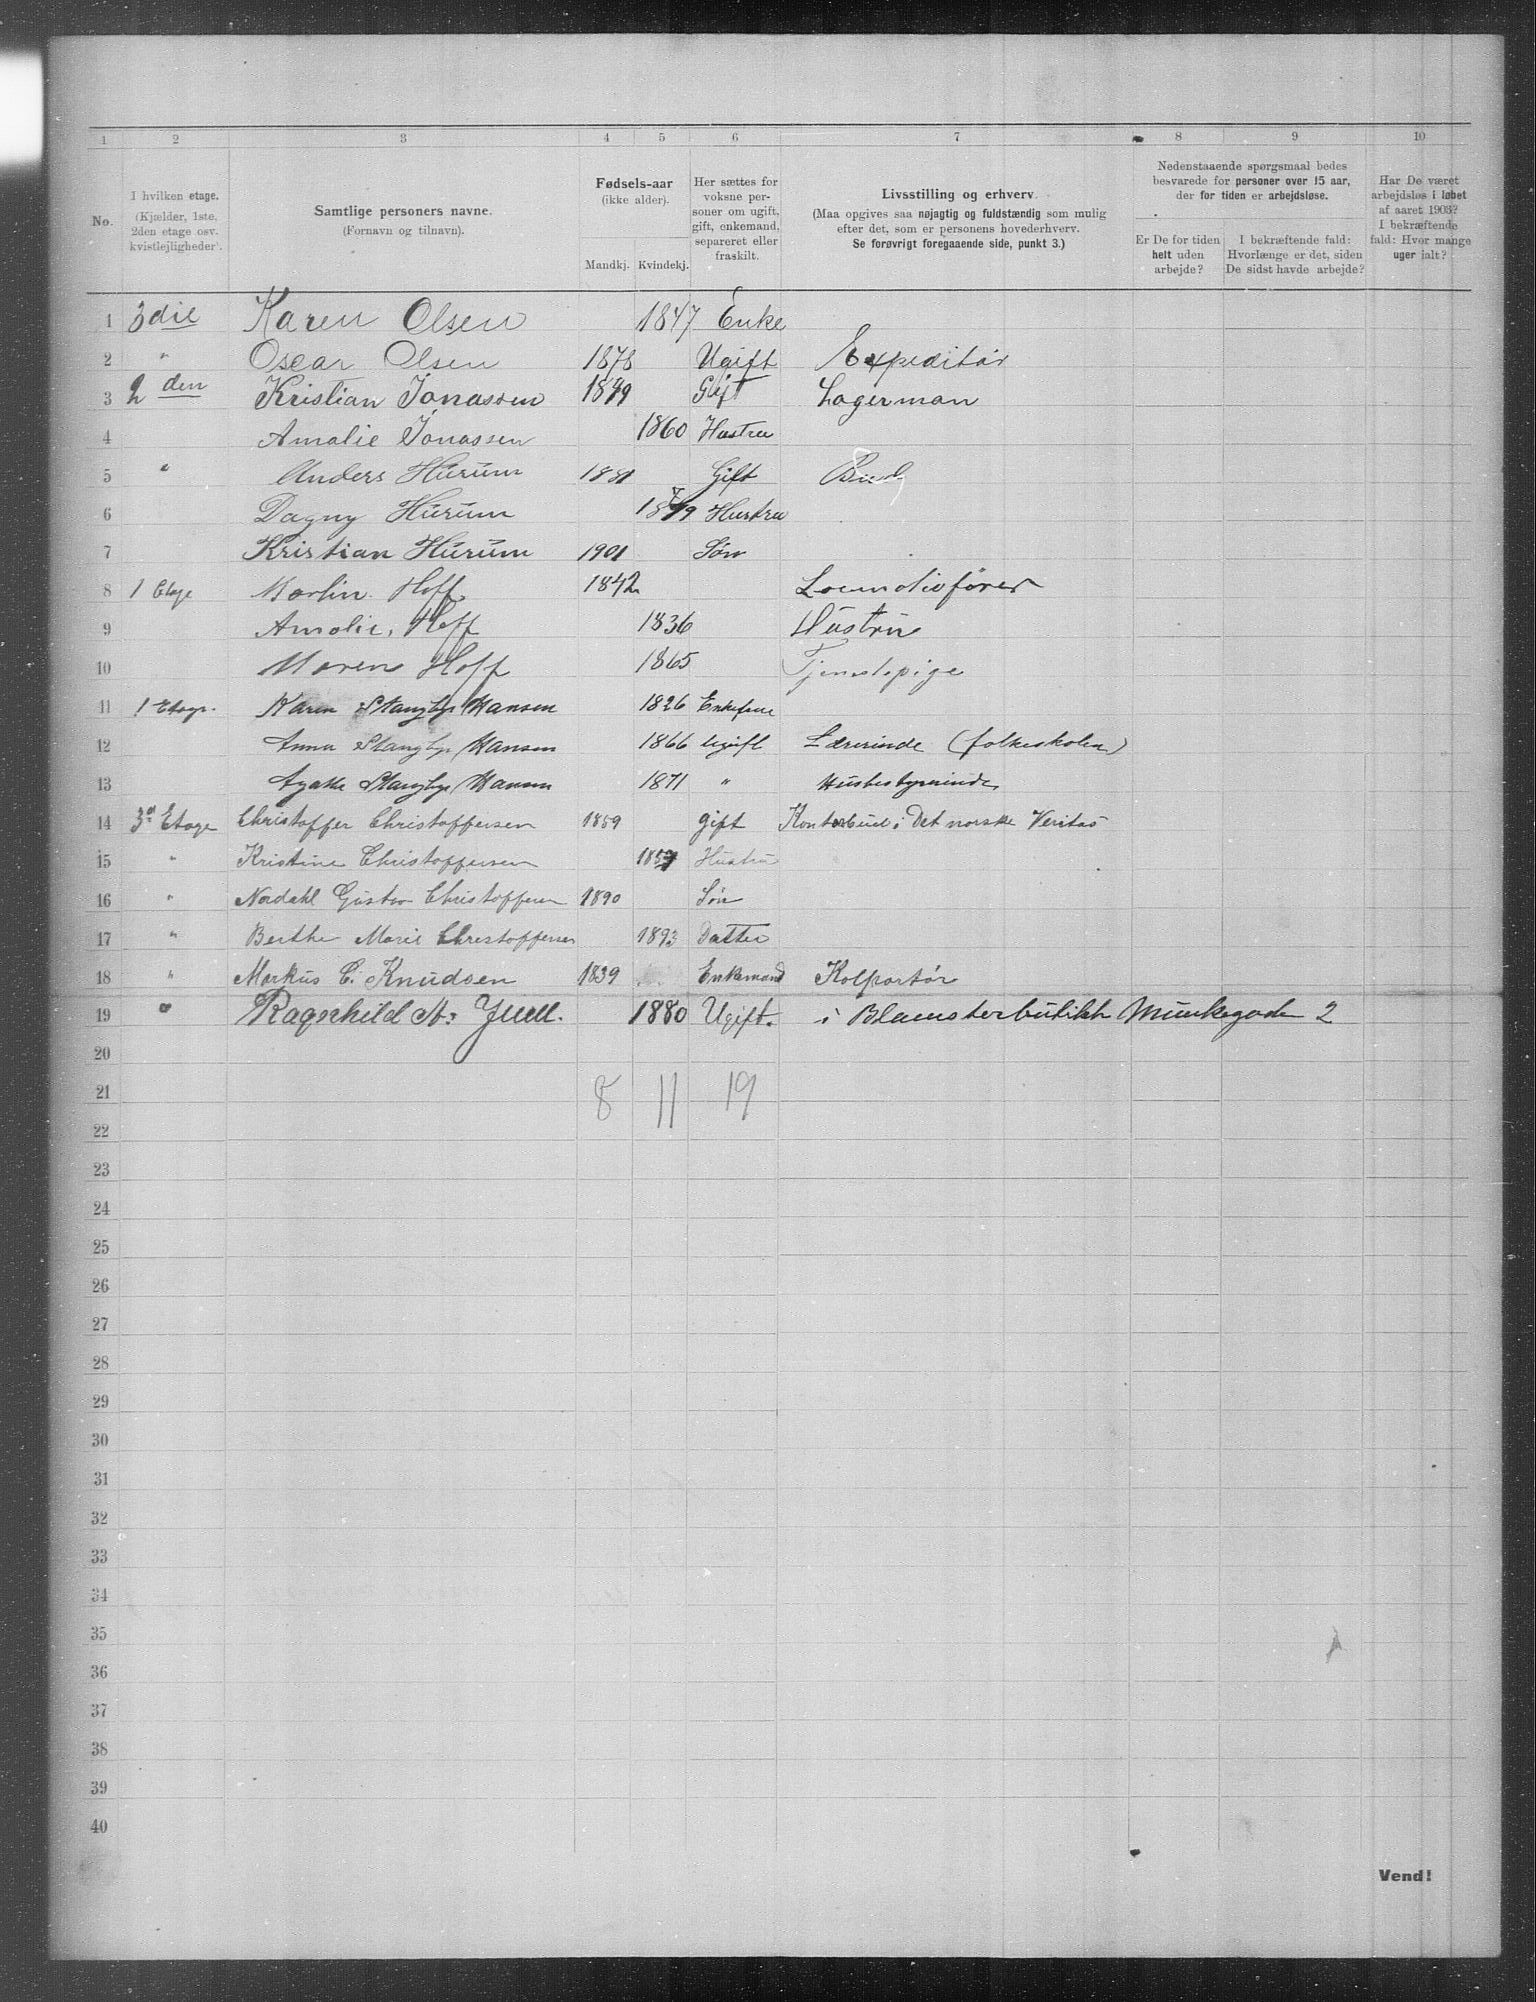 1 2 3 4 5 6 7 8 9 10
No.
I hvilken etage.
(Kjælder, 1ste,
2den etage osv.
kvistlejligheder).
Samtlige personers navne.
(Fornavn og tilnavn).
Fødsels-aar
(ikke alder).
Mandkj. Kvindekj.
Her sættes for
voksne per-
soner om ugift,
gift, enkemand,
separeret eller
fraskilt.
Livsstilling og erhverv
(Maa opgives saa nøjagtig og fuldstændig som mulig
efter det, som er personens hovederhverv.
Se forøvrigt foregaaende side, punkt 3.)
Nedenstaaende spørgsmaal bedes
besvarede for personer over 15 aar,
der for tiden er arbejdsløse.
Er De for tiden
helt uden
arbejde?
I bekræftende fald:
Hvorlænge er det, siden
De sidst havde arbejde?
Har De været
arbejdsløs i løbet
af aaret 1903?
I bekræftende
fald: Hvor mange
uger ialt?
1 3die Karen Olsen 1847 Enke
2 " Oscar Olsen 1878 Ugift Expeditør
3 2den Kristian Jonassen Gift Lagerman
4 Amalie Jonassen 1860 Hustru
5 " Anders Hurum 1881 Gift Bud
6 Dagny Hurum 1879 Hustru
7 Kristian Hurum 1901 Søn
8 1 Etage Martin Hoff 1842 Locomotivfører
9 Amalie, Hoff 1836 Hustru
10 Maren Hoff 1865 Tjenestepige
11 1 Etage. Karen Stangbye Hansen 1826 Enkefrue
12 Anna Stangbye Hansen 1866 Ugift Lærerinde (folkeskolen)
13 Agathe Stangbye Hansen 1871 " Husbestyrerinde
14 3die Etage Christoffer Christoffersen 1859 gift Kontorbud i Det norske Veritas
15 " Kristine Christoffersen Hustru
16 " Nordahl Gustav Christoffersen 1890 Søn
17 " Berthe Marie Christoffersen 1893 Datter
18 " Markus C. Knudsen 1839 Enkemand Kolportør
19 " Ragnhild A: Juell. 1880 Ugift. i Blomsterbutikk Munkegaden 2
20
21 8 11 19
22
23
24
25
26
27
28
29
30
31
32
33
34
35
36
37
38
39
40
Vend!